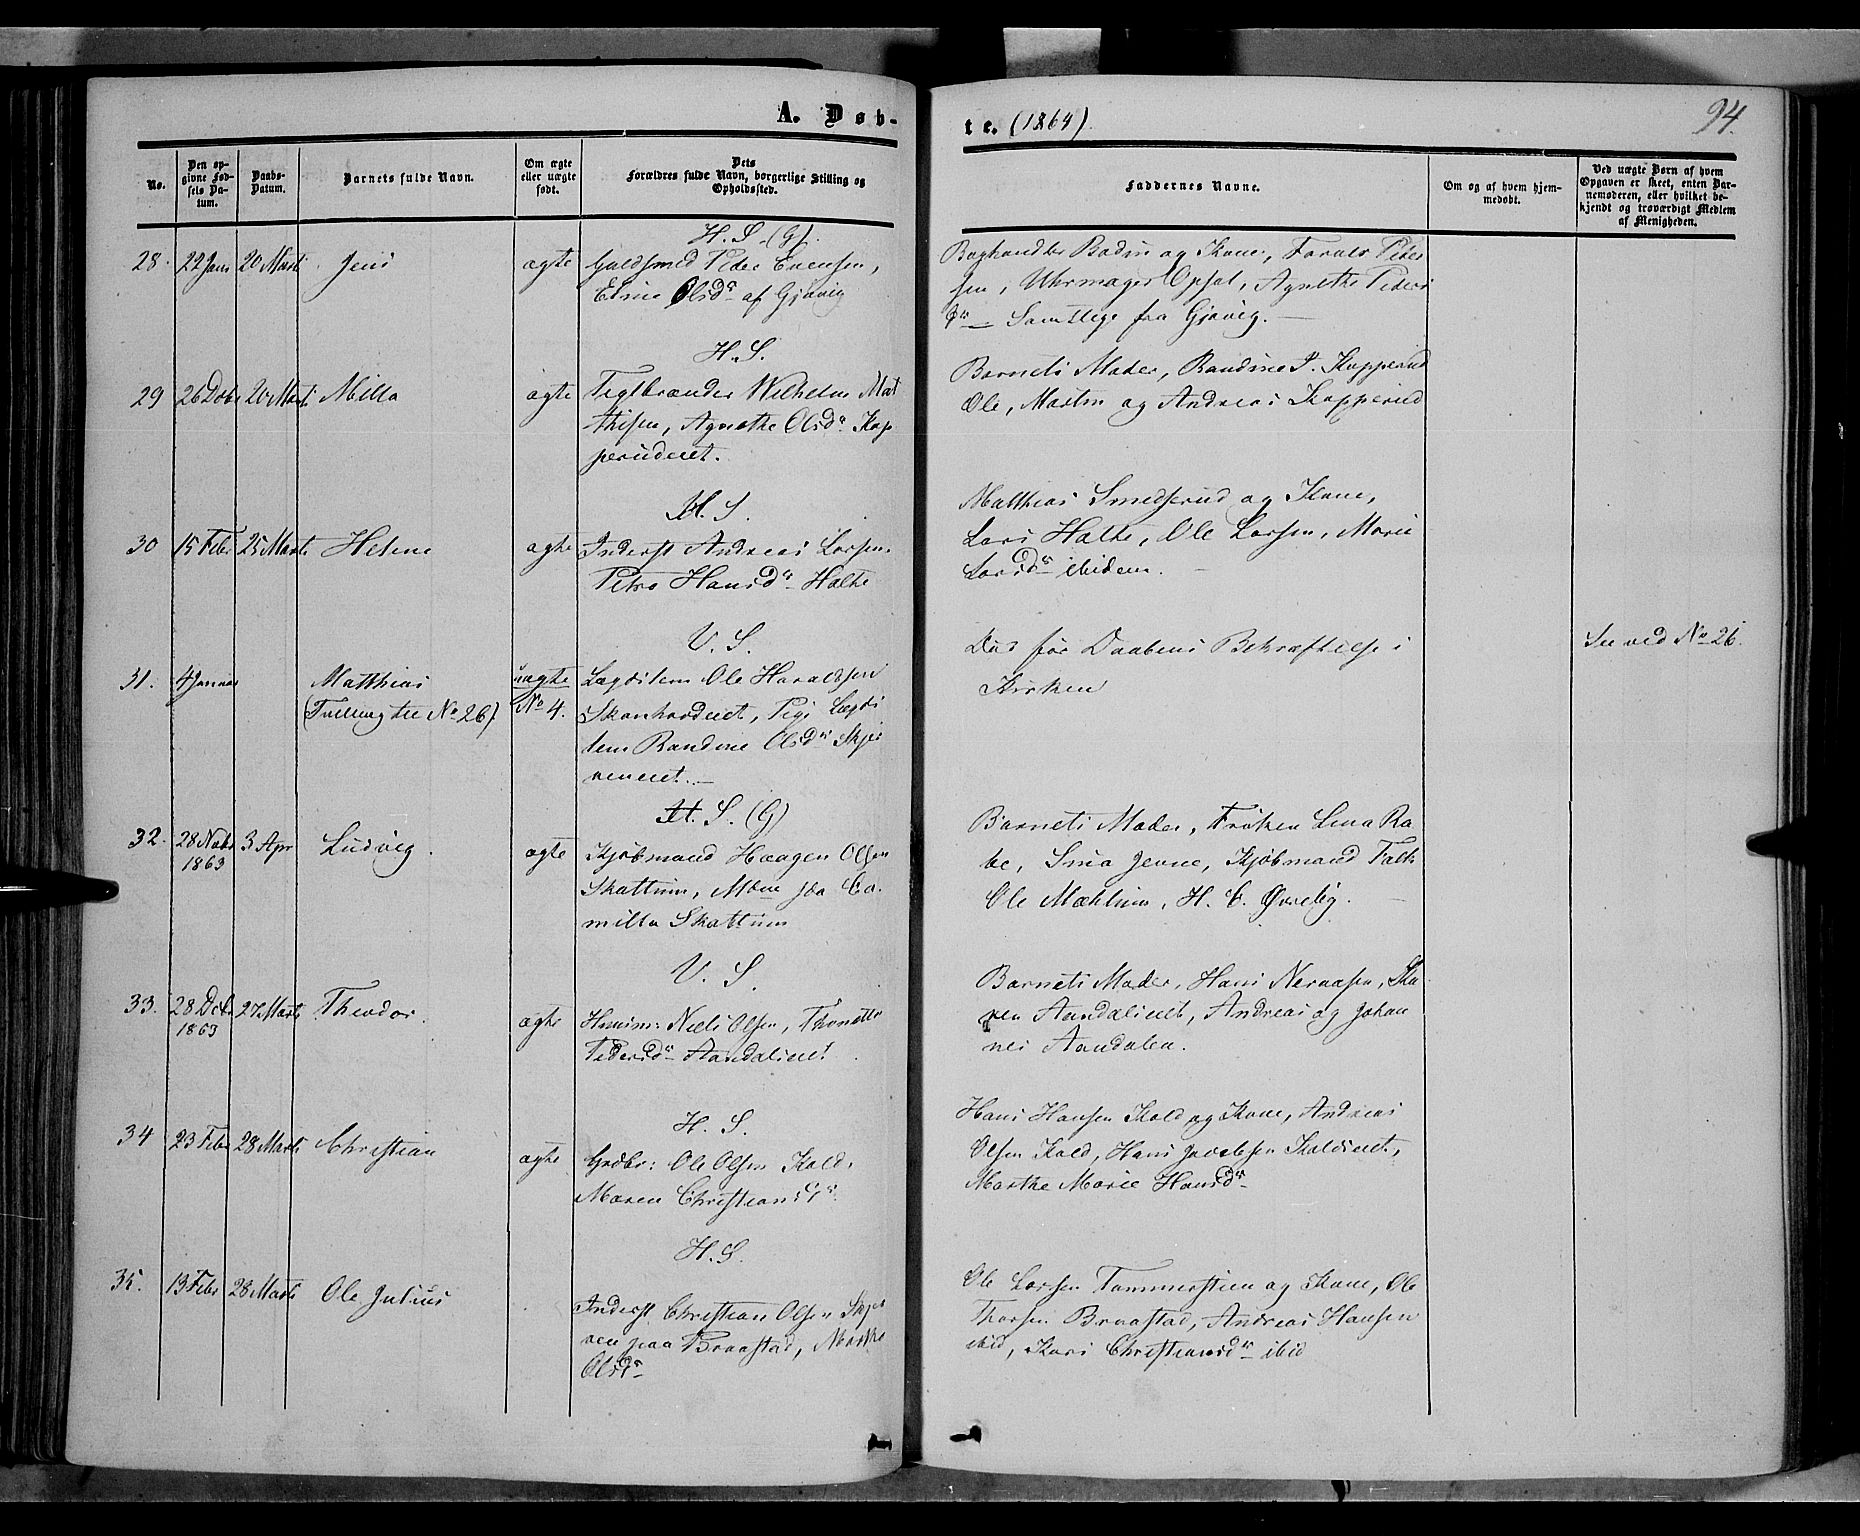 A. Døb-
te. (1864)
94.
No.
Den op-
givne Fød-
sels Da-
tum.
Daabs-
Datum.
Barnets fulde Navn.
Om ægte
eller uægte
født.
Dets
Forældres fulde Navn, borgerlige Stilling og
Opholdssted.
Faddernes Navne.
Om og af hvem hjem-
medøbt.
Ved uægte Børn af hvem
Opgaven er skeet, enten Bar-
nemoderen, eller hvilket be-
kjendt og troværdigt Medlem
af Menigheden.
H. S. (G).
28. 22 Jan 20 Marts Jens ægte Guldsmed Peder Evensen,
Eline Olsdr af Gjøvig
Boghandler Bodin og Kone, Peder-
sen, Uhrmager Opsal, Agnethe Peders
dr Samtlige fra Gjøvig.
H. S.
29 26 Decbr 20 Marts Milla ægte Teglbrænder Wilhelm Mat
thisen, Agnethe Olsdr Kop
perudeiet.
Barnets Moder, Randine P. Kopperud
Ole, Martin og Andreas Kopperud
H. S.
30 15 Febr 25 Marts Helene ægte Inderst Andreas Larsen,
Petra Hansdr Holte
Matthias Smedserud og Kone,
Lars Holte, Ole Larsen, Marie
Larsdr ibidem.
V. S.
31. 4 Januar Matthias uægte Lægdslem Ole Haraldsen
(Tvilling til No 26) No 4. Pige Lægds
lem Randine Olsdr Skje
veneiet.
Død før Daabens Bekræftelse i
Kirken
See ved No 26.
H. S. (G)
32. 28 Novbr 3 Apr Ludvig. ægte Kjøbmand Haagen Olsen
1863
Skattum, Ca-
milla Skattum
Barnets Moder, Frøken Lina Ra
be, Sina Jevne, Kjøbmand Falk
Ole Mæhlum, H. C. Øvreby.
V. S.
33. 28 Dcbr 27 Marts Theodor. ægte Huusm: Niels Olsen, Thonette
1863
Pedersdr Aandalseiet
Barnets Moder, Hans Neraasen, Ka-
ren Aandalseiet, Andreas og Johan
nes Aandalen.
H. S.
34 23 Febr 28 Marts Christian ægte Grdbr: Ole Olsen Kold,
Maren Christiansdr
Hans Hansen Kold og Kone, Andreas
Olsen Kold, Hans Jacobsen Koldseiet,
Marthe Marie Hansdr
H. S.
35. 13 Febr 28 Marts Ole Julius Inderst Christian Olsen Skje
ven paa Braastad, Marthe
Olsdr
Ole Larsen Tommerstien og Kone, Ole
Thorsen Braastad, Andreas Hansen
ibid, Kari Christiansdr ibid